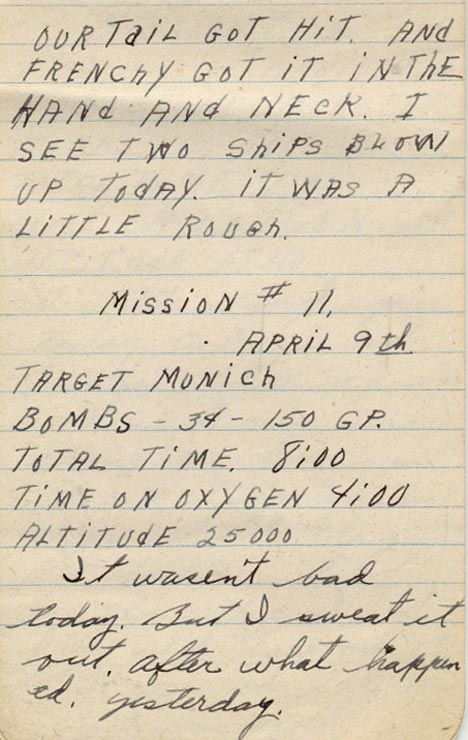 OUR TAIL GOT HIT. AND
FRENCHY GOT IT IN THE
HAND AND NECK. I
SEE TWO SHIPS BLOW
UP TODAY. IT WAS A
LITTLE ROUGH.
MISSION # 11.
APRIL 9th
TARGET MUNICH
BOMBS - 34 - 150 GP.
TOTAL TIME. 8:00
TIME ON OXYGEN 4:00
ALTITUDE 25000
It wasen't bad
today. But I sweat it
out. after what happen
ed. yesterday.